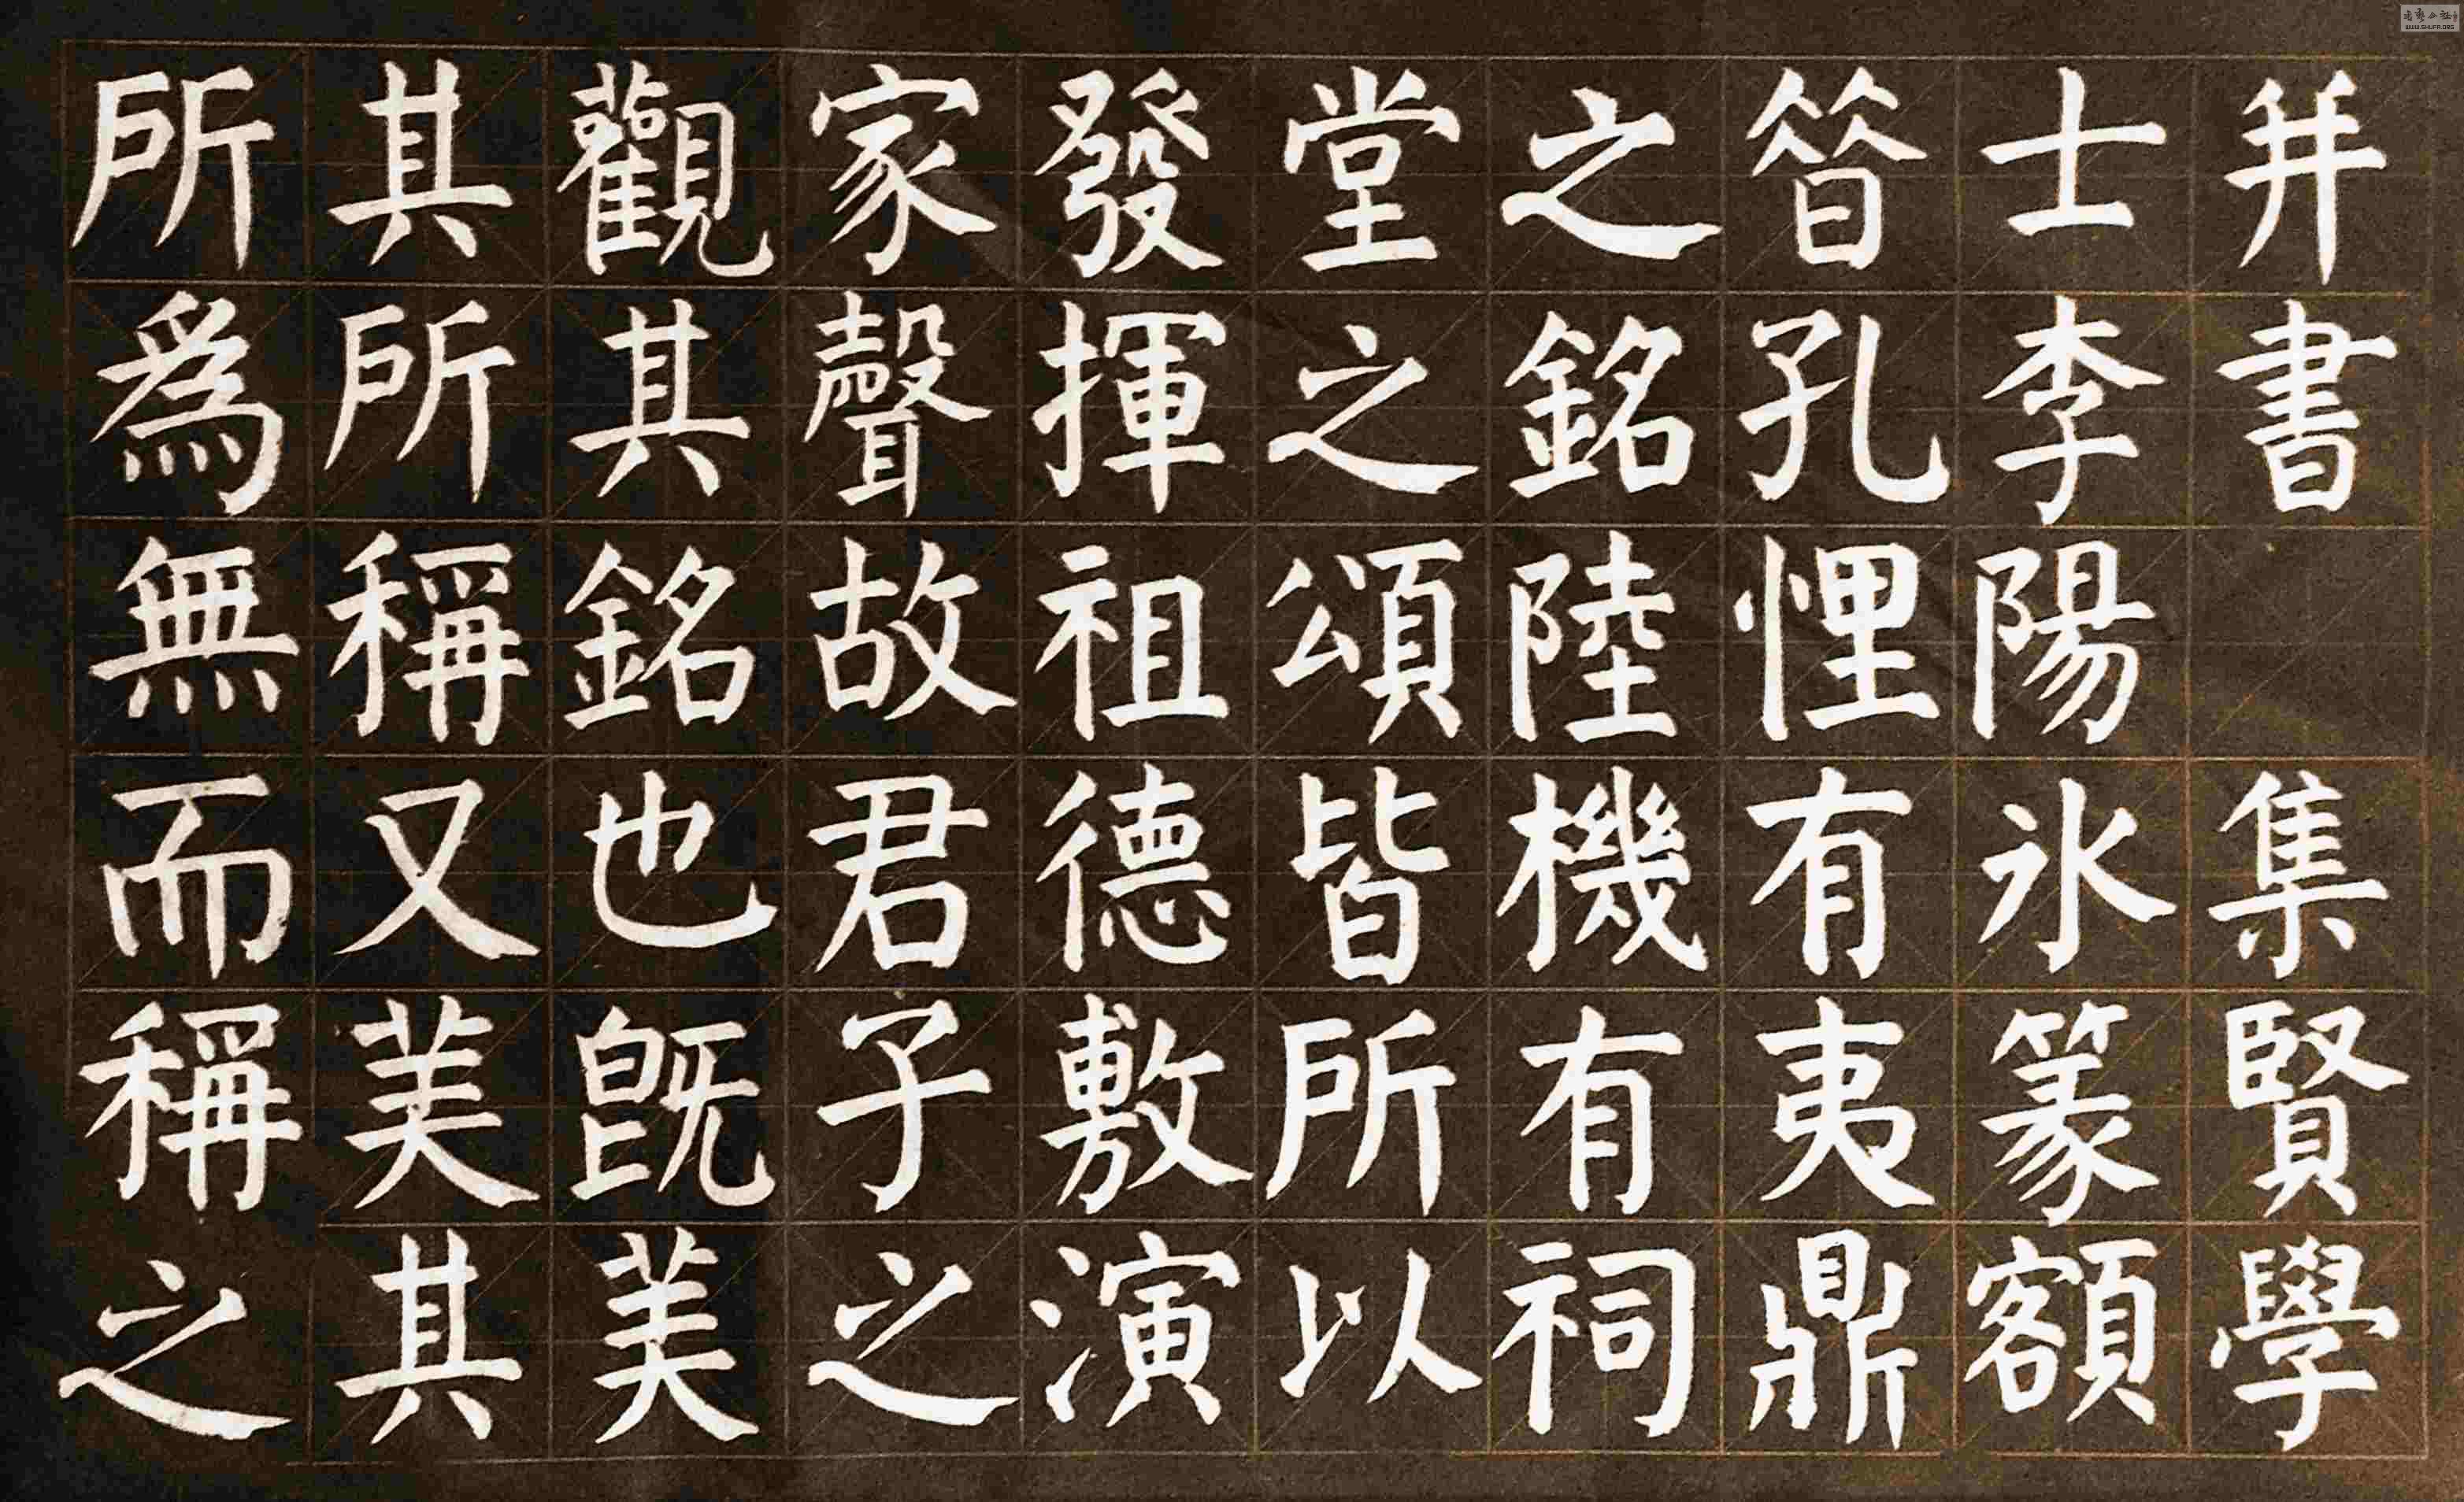 并書 集賢學
士李陽氷篆額
昔孔悝有夷鼎
之銘陸機有祠
堂之頌皆所以
發揮祖德敷演
家聲故君子之
觀其銘也既美
其所稱又美其
所爲無而稱之